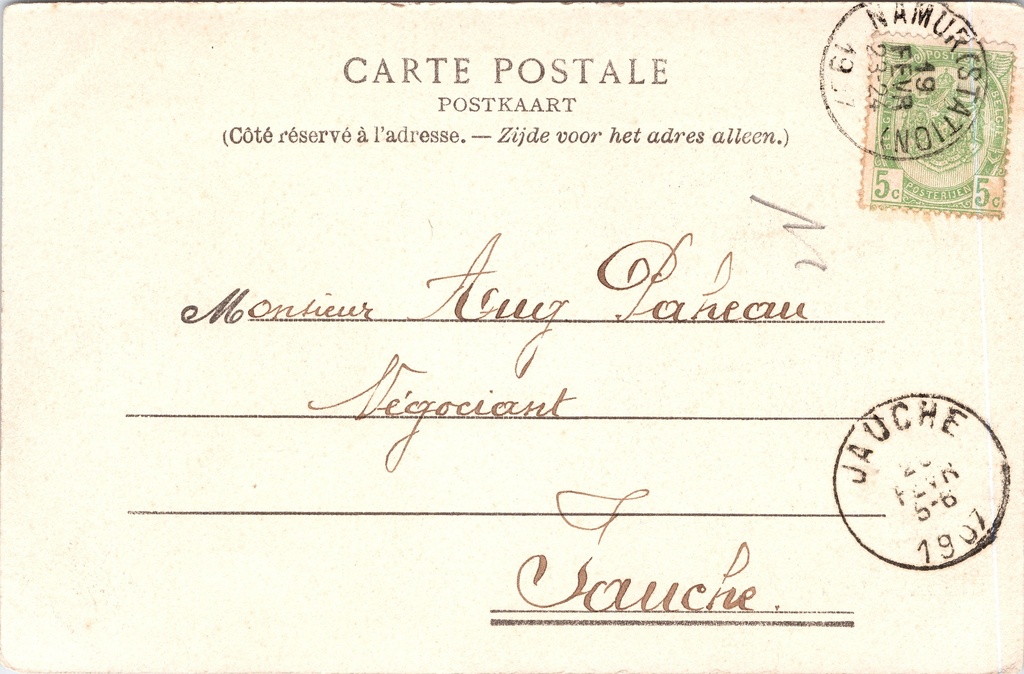 CARTE POSTALE
POSTKAART
(Côté réservé à l'adresse. — Zijde voor het adres alleen.)
NAMUR (STATION)
19
FEVR
23-24
19
POSTERIJEN
5c 5c
Monsieur Aug Paheau
Négociant
Jauche.
JAUCHE
5-6
1907